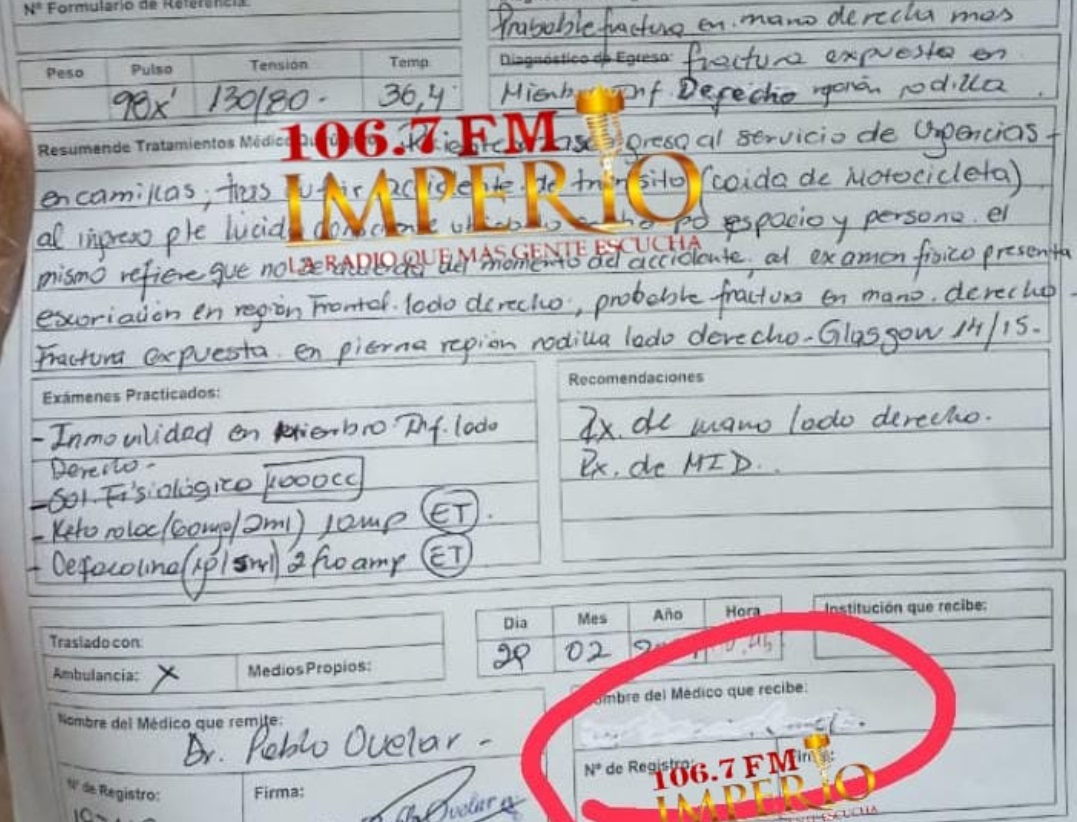 Nº Formulario de Referencia:
Probable fractura en mano derecha mas
Diagnóstico de Egreso: fractura expuesta en
Miemb Inf. Derecho región rodilla
Peso Pulso Tensión Temp.
98x' 130/80- 36,4
Resumende Tratamientos Médico
ingresa al servicio de Urgencias
en camillas, tras sufrir accidente de tránsito (caida de Motocicleta)
al ingreso pte lucido espacio y persona. el
mismo refiere que no se del momento del accidente. al examen fisico presenta
escoriación en región Frontal. lado derecho, probable fractura en mano. derecho
Fractura expuesta en pierna region rodilla lado derecho. Glasgow 14/15-
106.7 FM
IMPERIO
LA RADIO QUE MÁS GENTE ESCUCHA
Exámenes Practicados:
- Inmovilidad en Miembro Inf. lado
Derecho-
- Sol. Fisiológico 1000cc
- Ketorolac (60mg/2ml) 1amp ET.
- 2 fco amp ET
Recomendaciones
Rx. de mano lado derecho.
Rx. de MID.
Traslado con:
Ambulancia: X Medios Propios:
Dia Mes Año Hora
29 02
Institución que recibe:
Nombre del Médico que remite:
Dr. Pablo Ovelar -
Nº de Registro:
Firma:
Nombre del Médico que recibe:
Nº de Registro:
106.7 FM
IMPERIO